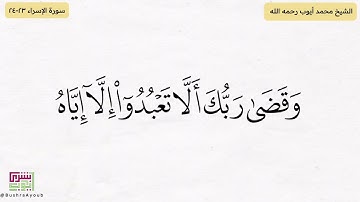 الشيخ محمد أيوب رحمه الله
سورة الإسراء ٢٣-٢٤
وَقَضَىٰ رَبُّكَ أَلَّا تَعْبُدُوٓا۟ إِلَّآ إِيَّاهُ
بشرى
@BushraAyoub